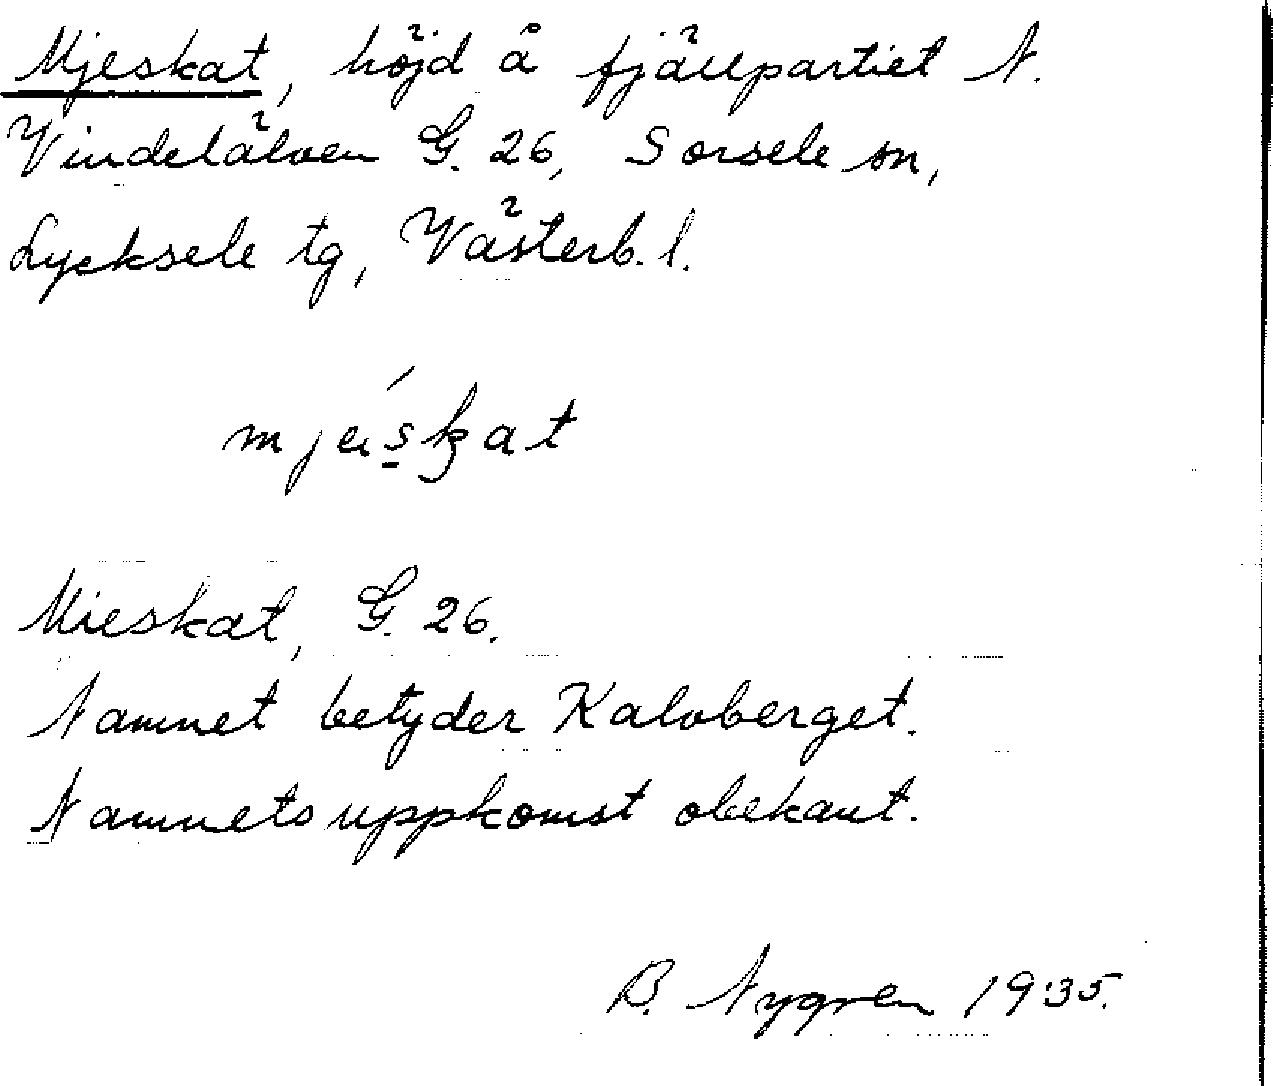 Mjeskat, höjd å fjällpartiet N.
Vindelälven G. 26, Sorsele sn,
Lycksele tg, Västerb. l.
Mieskat, G. 26.
Namnet betyder Kalvberget.
Namnets uppkomst obekant.
B. Nygren 1935.